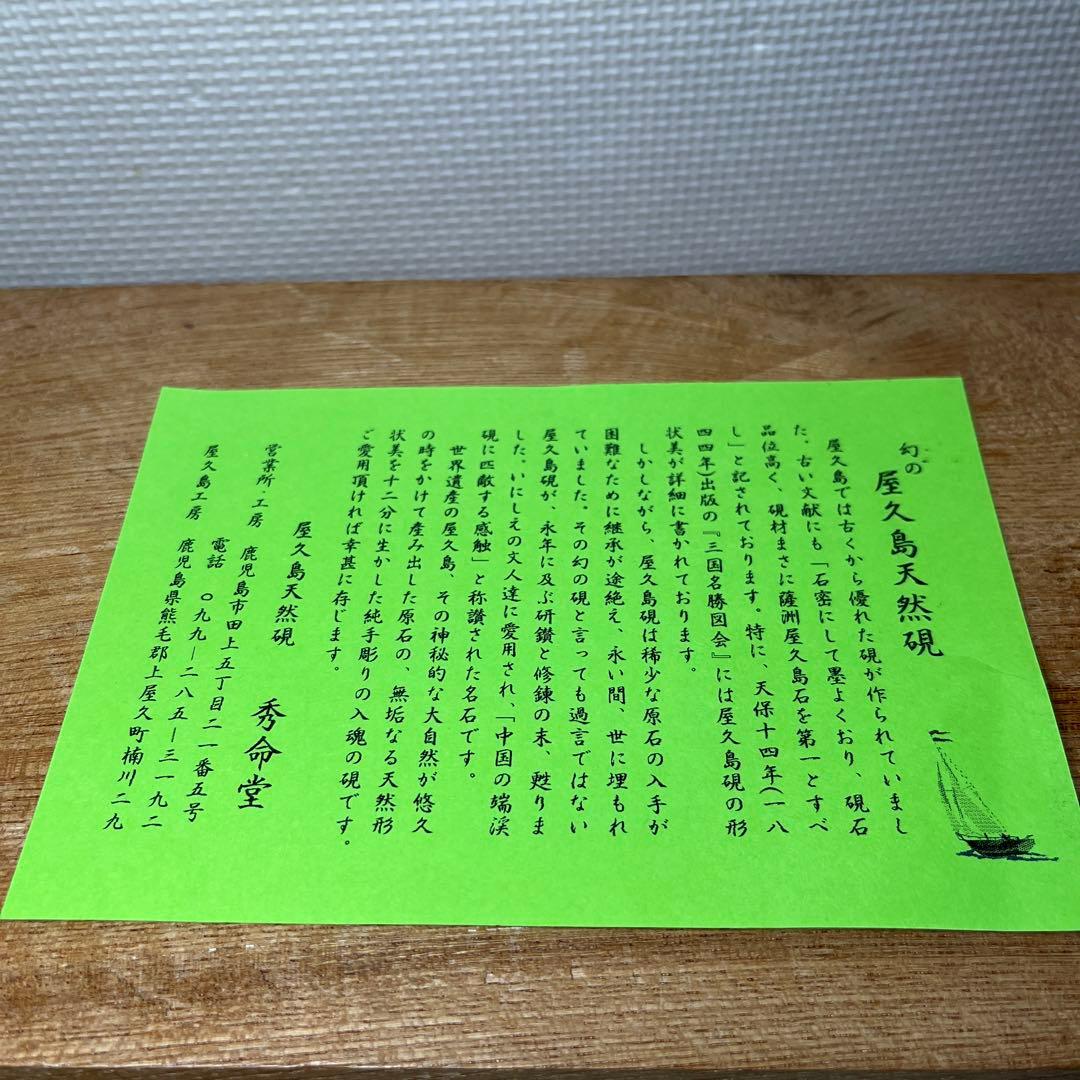 幻の
屋久島天然硯
屋久島では古くから優れた硯が作られていまし
た。古い文献にも「石密にして墨よくおり、硯石
品位高く、硯材まさに薩洲屋久島石を第一とすべ
し」と記されております。特に、天保十四年(一八
四四年)出版の『三国名勝図会』には屋久島硯の形
状美が詳細に書かれております。
しかしながら、屋久島硯は稀少な原石の入手が
困難なために継承が途絶え、永い間、世に埋もれ
ていました。その幻の硯と言っても過言ではない
屋久島硯が、永年に及ぶ研鑽と修錬の末、甦りま
した。いにしえの文人達に愛用され、「中国の端渓
硯に匹敵する感触」と称讃された名石です。
世界遺産の屋久島、その神秘的な大自然が悠久
の時をかけて産み出した原石の、無垢なる天然形
状美を十二分に生かした純手彫りの入魂の硯です。
ご愛用頂ければ幸甚に存じます。
屋久島天然硯 秀命堂
営業所・工房 鹿児島市田上五丁目二一番五号
電話 〇九九―二八五―三一九二
屋久島工房 鹿児島県熊毛郡上屋久町楠川二九